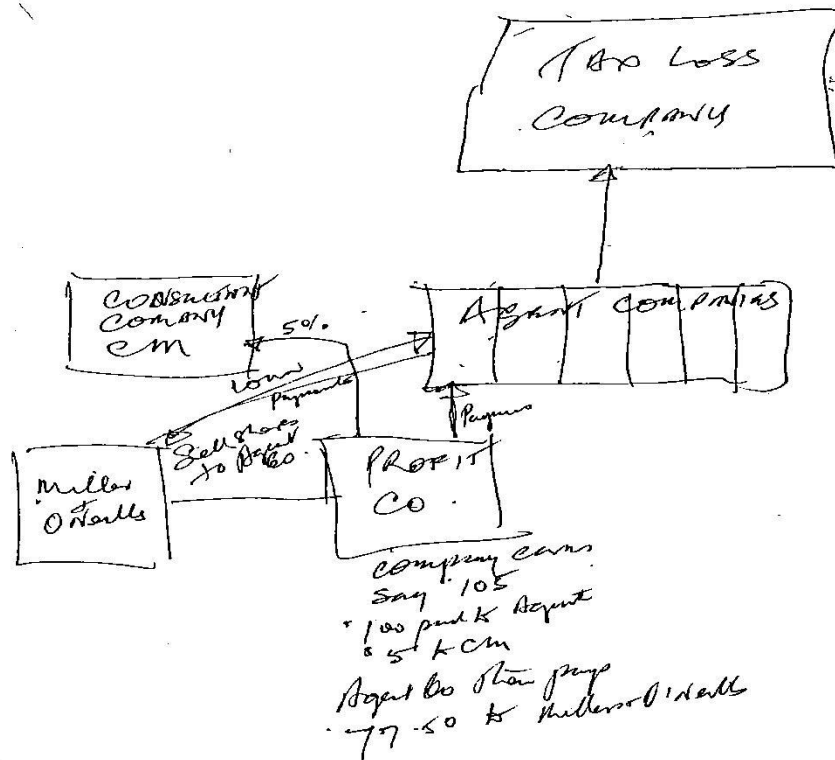 TAX LOSS
COMPANY
CONSULTANT
COMPANY
CM
5%
AGENT COMPANIES
Loan
Payments
Sell shares
to Agent
Co
Payment
Miller
+
O Neills
PROFIT
CO.
company earns
say 105
100 paid to Agent
5 to CM
Agent Co then pays
77.50 to Millers + O'Neills